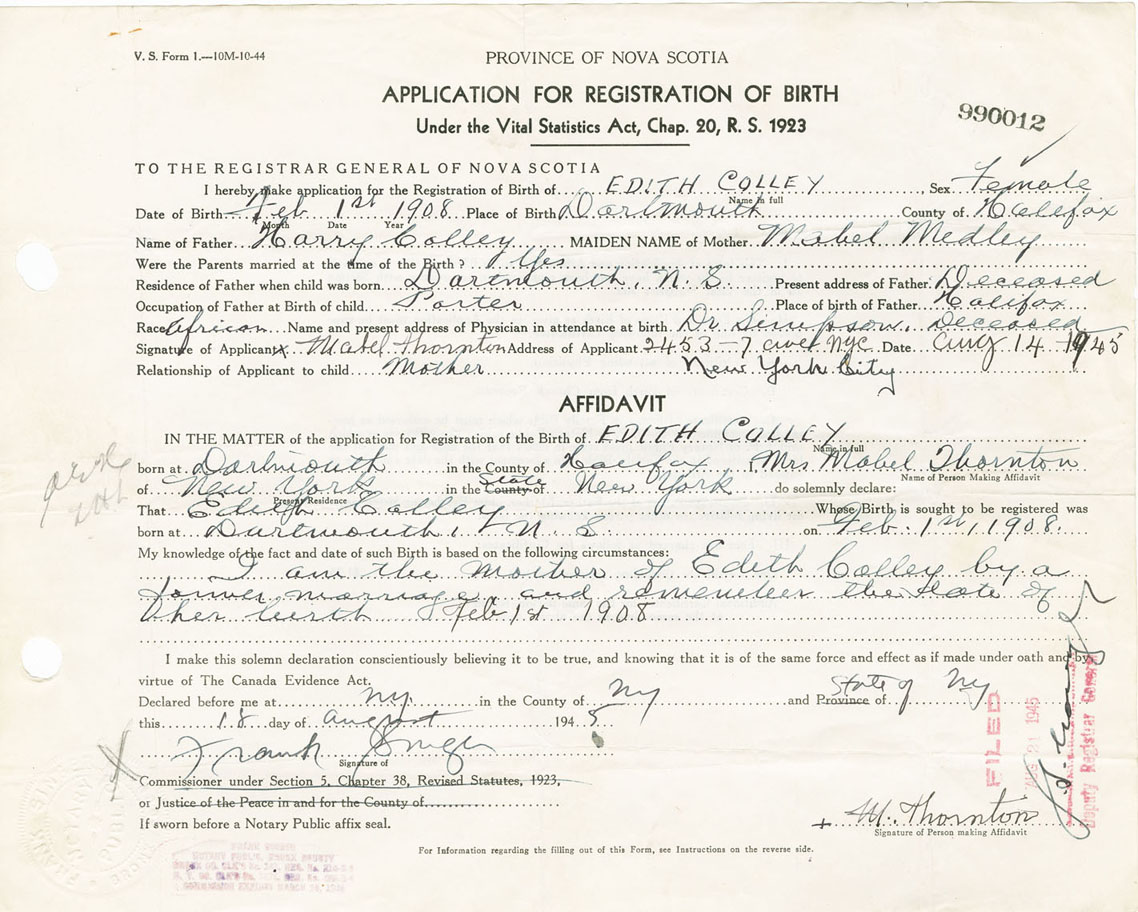 V. S. Form 1.—10M-10-44
PROVINCE OF NOVA SCOTIA
APPLICATION FOR REGISTRATION OF BIRTH
Under the Vital Statistics Act, Chap. 20, R. S. 1923
990012
TO THE REGISTRAR GENERAL OF NOVA SCOTIA
I hereby make application for the Registration of Birth of EDITH COLLEY, Sex Female
Name in full
Date of Birth Feb 1st 1908 Place of Birth Dartmouth County of Halifax
Month Date Year
Name of Father Harry Colley MAIDEN NAME of Mother Mabel Medley
Were the Parents married at the time of the Birth? Yes
Residence of Father when child was born Dartmouth, N. S Present address of Father: Deceased
Occupation of Father at Birth of child Porter Place of birth of Father Halifax
Race African Name and present address of Physician in attendance at birth. Dr Simpson. Deceased
Signature of Applicant x Mabel Thornton Address of Applicant 2453-7 ave NYC Date Aug 14-1945
Relationship of Applicant to child Mother New York City
AFFIDAVIT
IN THE MATTER of the application for Registration of the Birth of EDITH COLLEY
Name in full
born at Dartmouth in the County of Halifax I, Mrs Mabel Thornton
Name of Person Making Affidavit
of New York in the State County of New York do solemnly declare:
Present Residence
That Edith Colley Whose Birth is sought to be registered was
born at Dartmouth, N. S on Feb. 1st, 1908.
My knowledge of the fact and date of such Birth is based on the following circumstances:
I am the mother of Edith Colley by a
former marriage and remember the date of
her birth Feb 1st 1908
I make this solemn declaration conscientiously believing it to be true, and knowing that it is of the same force and effect as if made under oath and by
virtue of The Canada Evidence Act.
Declared before me at NY in the County of NY and Province of State of NY
this 18 day of August 1945
Frank
Signature of
Commissioner under Section 5, Chapter 38, Revised Statutes, 1923,
or Justice of the Peace in and for the County of
If sworn before a Notary Public affix seal.
M. Thornton
Signature of Person making Affidavit
FILED
AUG 21 1945
Deputy Registrar General
For Information regarding the filling out of this Form, see Instructions on the reverse side.